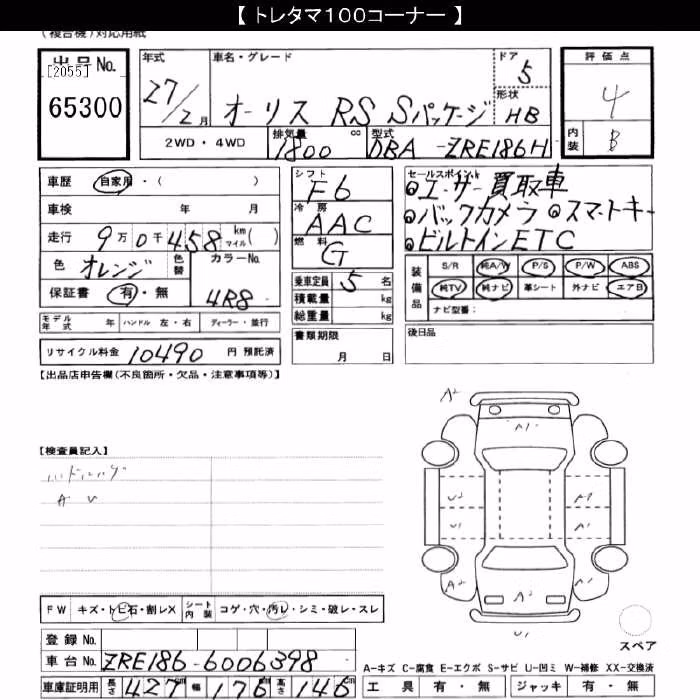 【 トレタマ100コーナー 】
(複合機)対応用紙
出品No.
[2055]
65300
年式 27/2月
車名・グレード オーリス RS Sパッケージ
ドア 5
形状 HB
評価点 4
内装 B
2WD・4WD
排気量 1800 cc
型式 DBA-ZRE186H
車歴 自家用・( )
車検 年 月
走行 9万0千458 km マイル( )
色 オレンジ 色替 カラーNo. 4R8
保証書 有・無
シフト F6
冷房 AAC
燃料 G
乗車定員 5名
積載量 kg
総重量 kg
書類期限
月 日
セールスポイント
エーサー買取車
バックカメラ スマートキー
ビルトインETC
装備品 S/R 純A/W P/S P/W ABS
純TV 純ナビ 革シート 外ナビ エアB
ナビ型番:
後日品
モデル年式 年 ハンドル 左・右 ディーラー・並行
リサイクル料金 10490 円 預託済
【出品店申告欄(不良箇所・欠品・注意事項等)】
【検査員記入】
A U
A2
A1
U2 A1
U1 A1
A2 A2 A1
U1
スペア
FW キズ・トビ石・割レX シート内装 コゲ・穴・汚レ・シミ・破レ・スレ
登録No.
車台No. ZRE186-6006398
車庫証明用 長さ 427cm 幅 176cm 高さ 146cm
A-キズ C-腐食 E-エクボ S-サビ U-凹ミ W-補修 XX-交換済
工具 有・無 ジャッキ 有・無